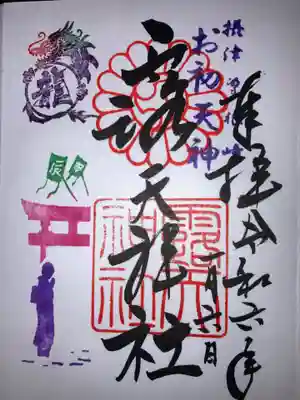 摂津 曽根崎
奉拝 令和六年
月六日
お初天神
露天神社
露天神社
龍
甲辰